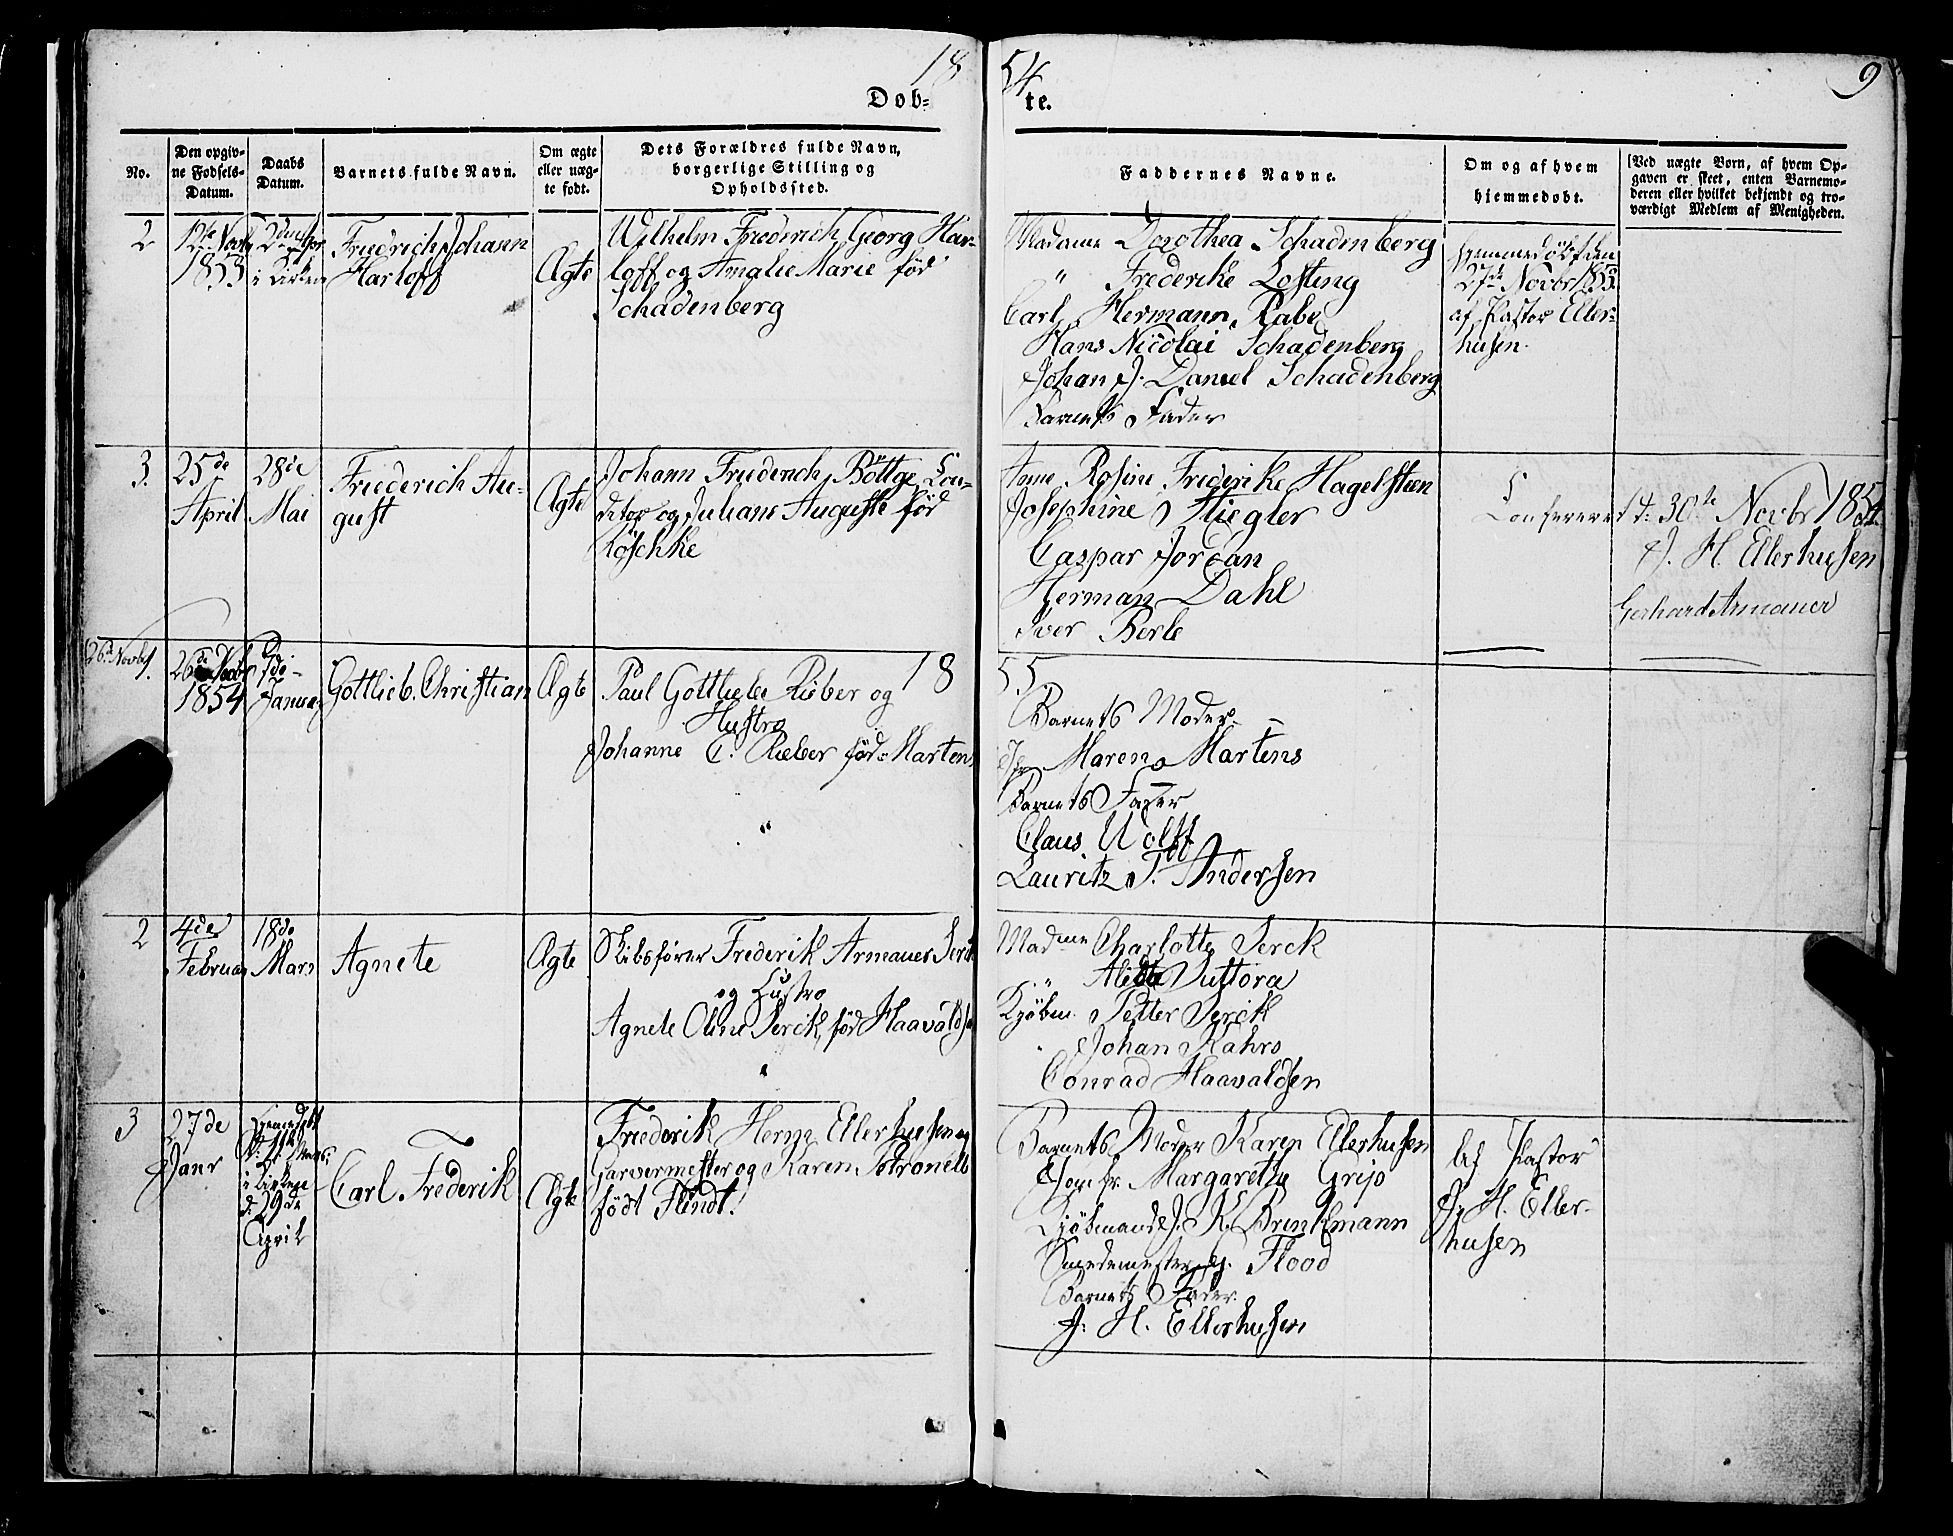 1854
9
Døbte.
No.
Den opgiv-
ne Fødsels-
Datum.
Daabs
Datum.
Barnets fulde Navn.
Om ægte
eller uæg-
te født.
Dets Forældres fulde Navn,
borgerlige Stilling og
Opholdssted.
Faddernes Navne.
Om og af hvem
hjemmedøbt.
Ved uægte Børn, af hvem Op-
gaven er skeet, enten Barnemo-
deren eller hvilket bekjendt og tro-
værdigt Medlem af Menigheden.
2
12te Novbr
1853
2den Apr
i Kirken
Friedrich Johann
Harloff
Ægte
Wilhelm Frederich Georg Har-
loff og Amalie Marie fød
Schadenberg
Madame Dorothea Schadenberg
" Frederike Losting
Carl Hermann Rabe
Hans Nicolai Schadenberg
Johan J. Daniel Schadenberg
Barnets Fader
hjemmedøbt den
27de Novbr 1853
af Pastor Eller-
husen.
3.
25de
April
28de
Mai
Friederich Au-
gust
Ægte
Johann Friederich Böttge, Con-
ditor og Juliane Auguste fød
Röschke
Anne Rosine Frederike Hagelsteen
Josephine Stiegler
Caspar Jordan
Herman Dahl
Iver Berle
Confereret d: 30te Novbr 1854
J. H. Ellerhusen
Gerhard Armauer
1855
26de Novbr
1.
26de Novbr
1854
7de
Januar
Gottlieb Christian
Ægte
Paul Gottlieb Rieber og
Hustro
Johanne C. Rieber fød Martens
Barnets Moder
Jfr Maren Martens
Barnets Fader
Claus Wolff
Lauritz T. Andersen
2
4de
Februar
18de
Mars
Agnete
Ægte
Skibsfører Frederik Armauer Serck
og Hustro
Agnete Oline Serck, fød Haavaldsen
Madme Charlotte Serck
" Alida Suttora
Kjøbm. Petter Serck
Johan Kahrs
Conrad Haavaldsen
3
27de
Janr
Hjemedøbt
i Kirken
d: 29de
April
Carl Frederik
Ægte
Friederik Herm. Ellerhusen
Garvermester og Karen Petronelle
født Flindt.
Barnets Moder Karen Ellerhusen
Jomfr. Margarethe Grip
Kjøbmand J. K. Brinkmann
Smedemester J. Flood
Barnets Fader.
J. H. Ellerhusen
Af Pastor
J. H. Eller-
husen